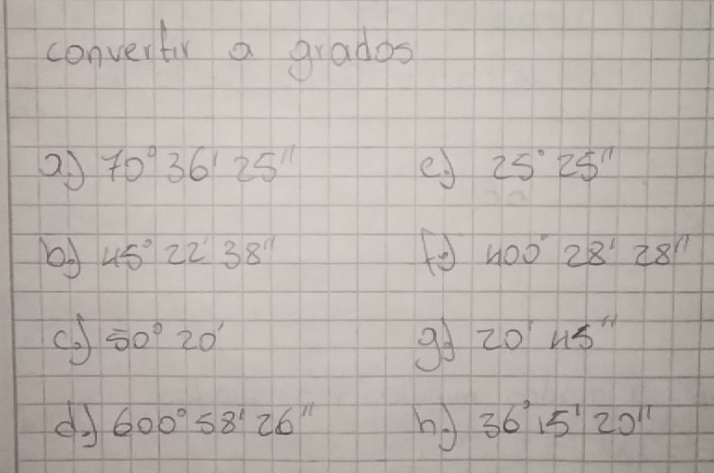 convertir a grados
a) 70° 36' 25"
b) 45° 22' 38"
c) 50° 20'
d) 600° 58' 26"
e) 25° 25"
f) 400° 28' 28"
g) 20' 45"
h) 36° 15' 20"